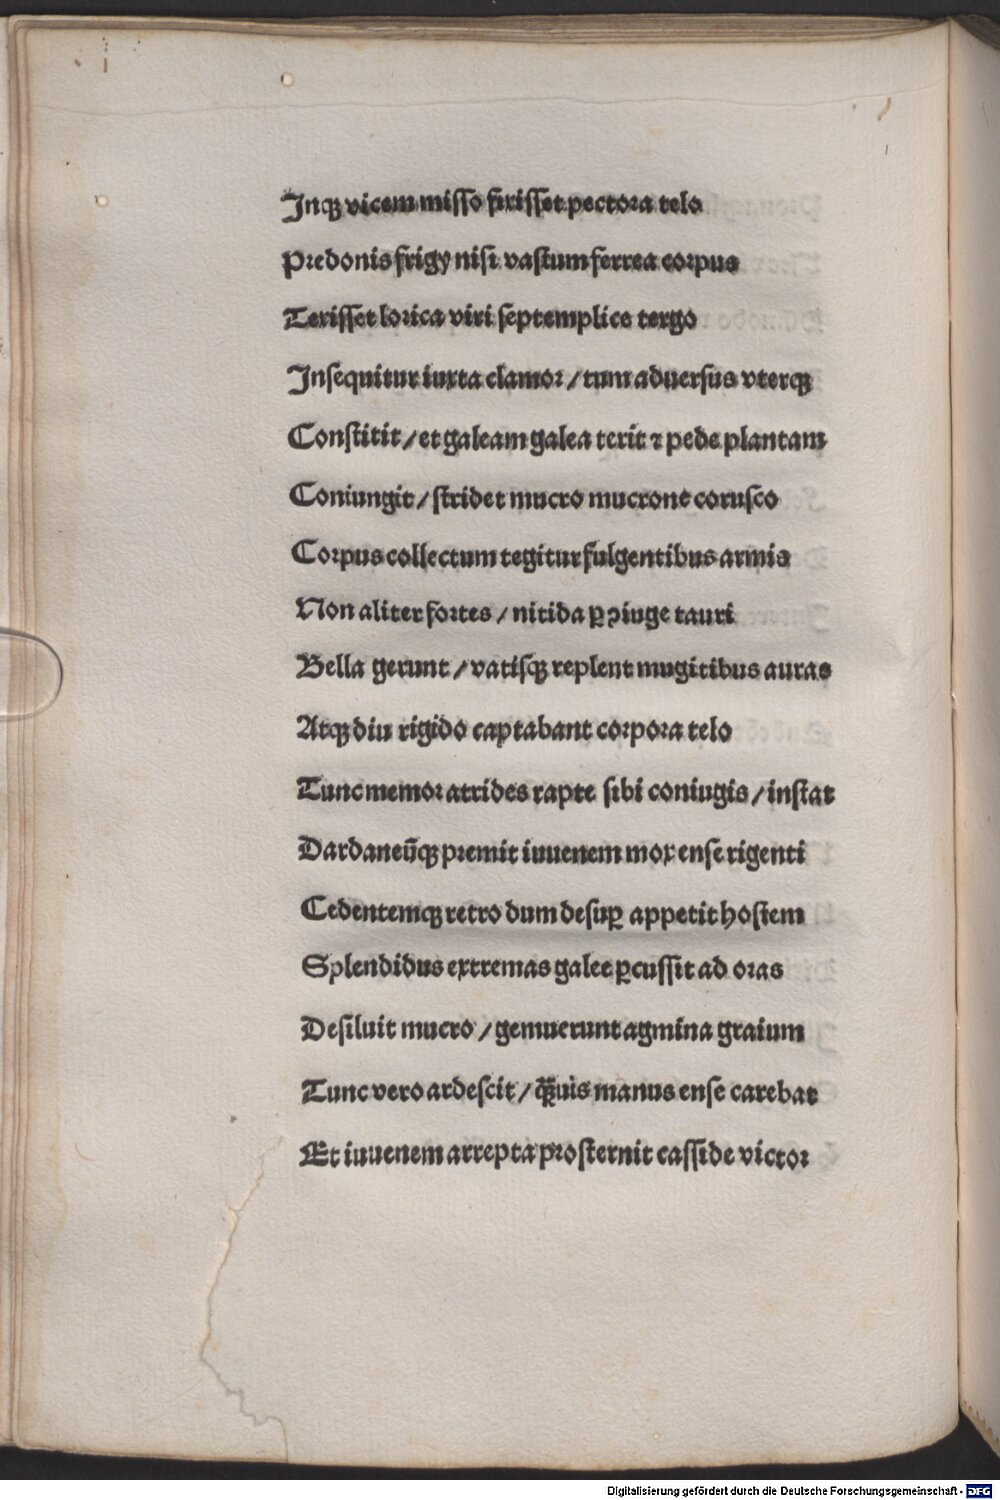 Inqꝫ vicem misso fixisset pectora telo
Predonis frigy nisi vastum ferrea corpus
Terisset lorica viri septemplice tergo
Insequitur iuxta clamor / tum aduersus vterqꝫ
Constitit / et galeam galea terit ⁊ pede plantam
Coniungit / stridet mucro mucrone corusco
Corpus collectum tegitur fulgentibus armis
Non aliter fortes / nitida ꝑ ꝯiuge tauri
Bella gerunt / vatisqꝫ replent mugitibus auras
Atqꝫ diu rigido captabant corpora telo
Tunc memor atrides rapte sibi coniugis / instat
Dardaneūqꝫ premit iuuenem mox ense rigenti
Cedentemqꝫ retro dum desuꝑ appetit hostem
Splendidus extremas galee ꝑcussit ad oras
Desiluit mucro / gemuerunt agmina graium
Tunc vero ardescit / qꝫ̄uis manus ense carebat
Et iuuenem arrepta prosternit casside victor
Digitalisierung gefördert durch die Deutsche Forschungsgemeinschaft - DFG